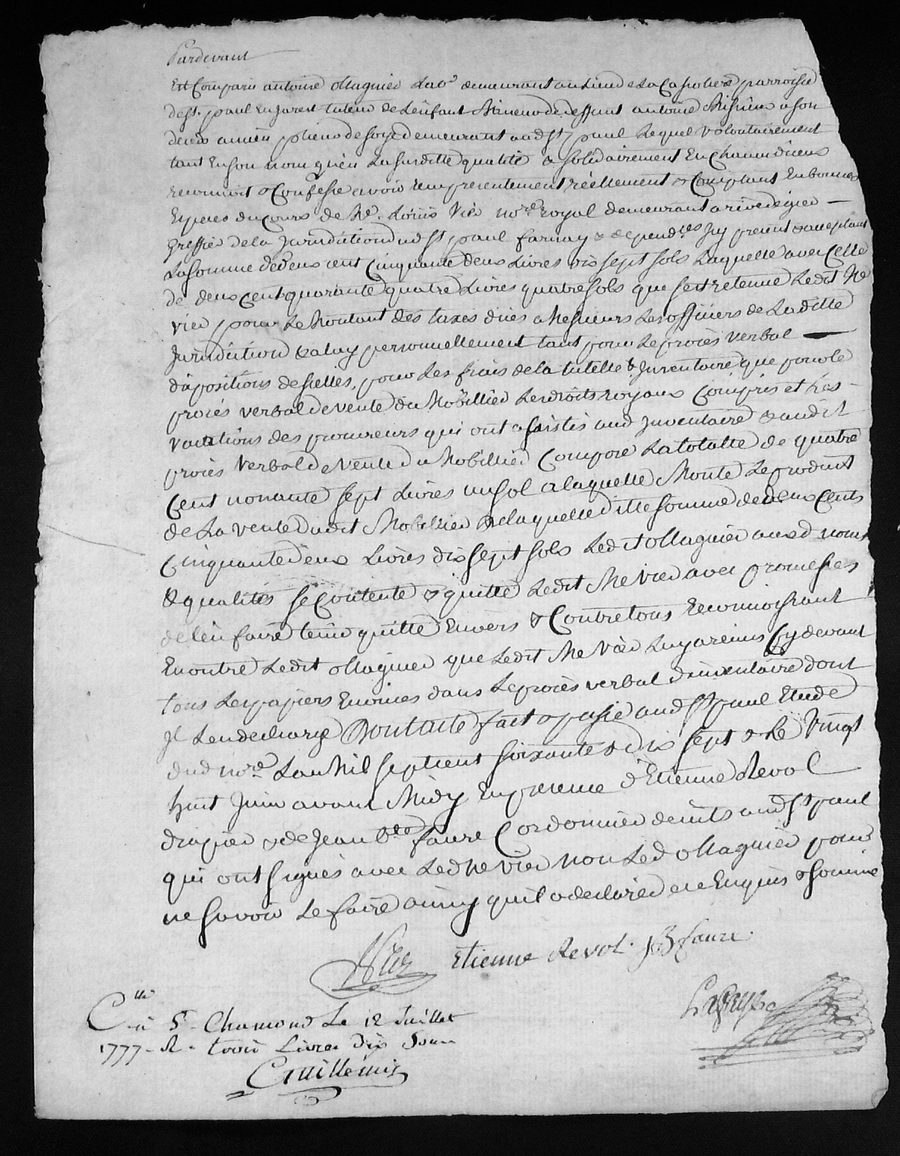 Pardevant
Est Comparu antoine Magnier Lab.r demeurant au Lieu de La parroisse
de st. paul En Jarest tuteur de L'enfant Mineur de deffunt antoine à son
demeurant aud. st paul Lequel volontairement
tant En son nom qu'en La susditte qualité a solidairement
reconnoit & Confesse avoir reellement & Comptant En bonnes
Especes du Cours de Me. Loüis Vier no.re royal demeurant a rivedegier
greffier de la Jurisdiction dud. st. paul farnay & dépend.ces Icy présent & acceptant
La somme de deux cent Cinquante deux Livres dix sept sols Laquelle avec Celle
de deux Cent quarante quatre Livres quatre sols que s'est retenue Ledit Me
vier pour Le Montant des taxes dues a Messieurs Les officiers de La ditte
Jurisdiction & a luy personnellement tant pour Le procès verbal
d'apositions de scelles, pour Les frais de la tutelle & Inventaire que pour le
procès verbal de vente du Mobillier Les droits royaux Compris et Les
vacations des procureurs qui ont assistés aud. Inventaire & audit
procès verbal de vente du Mobillier Compose La totalle de quatre
Cent nonante sept Livres un sol a laquelle Monte Le produit
de La vente dudit Mobillier de laquelle ditte somme de deux Cents
Cinquante deux Livres dix sept sols Ledit Magnier ausd. noms
& qualités se Contente & quitte Ledit Me vier avec promesses
de l'en faire tenir quitte Envers & Contre tous reconnoissant
En outre Ledit Magnier que Ledit Me Vier Luy a remis Cy devant
tous Les papiers Enoncés dans Le procès verbal d'inventaire dont
Il L'en decharge Dont acte fait & passé aud. st. paul Etude
dud. no.re L'an Mil sept cent soixante & dix sept & Le Vingt
huit Juin avant Midy En presence d'Etienne Revol
drapier & de Jean B.te faure Cordonnier de aud. st. paul
qui ont signés avec Led. Me vier non Led. Magnier pour
ne savoir Le faire ainsy qu'il a déclaré de ce Enquis & sommé
Etienne Revol. JB faure.
C.lle à St. Chamond Le 12 Juillet
1777. R. trois Livres dix sous
Guillemin